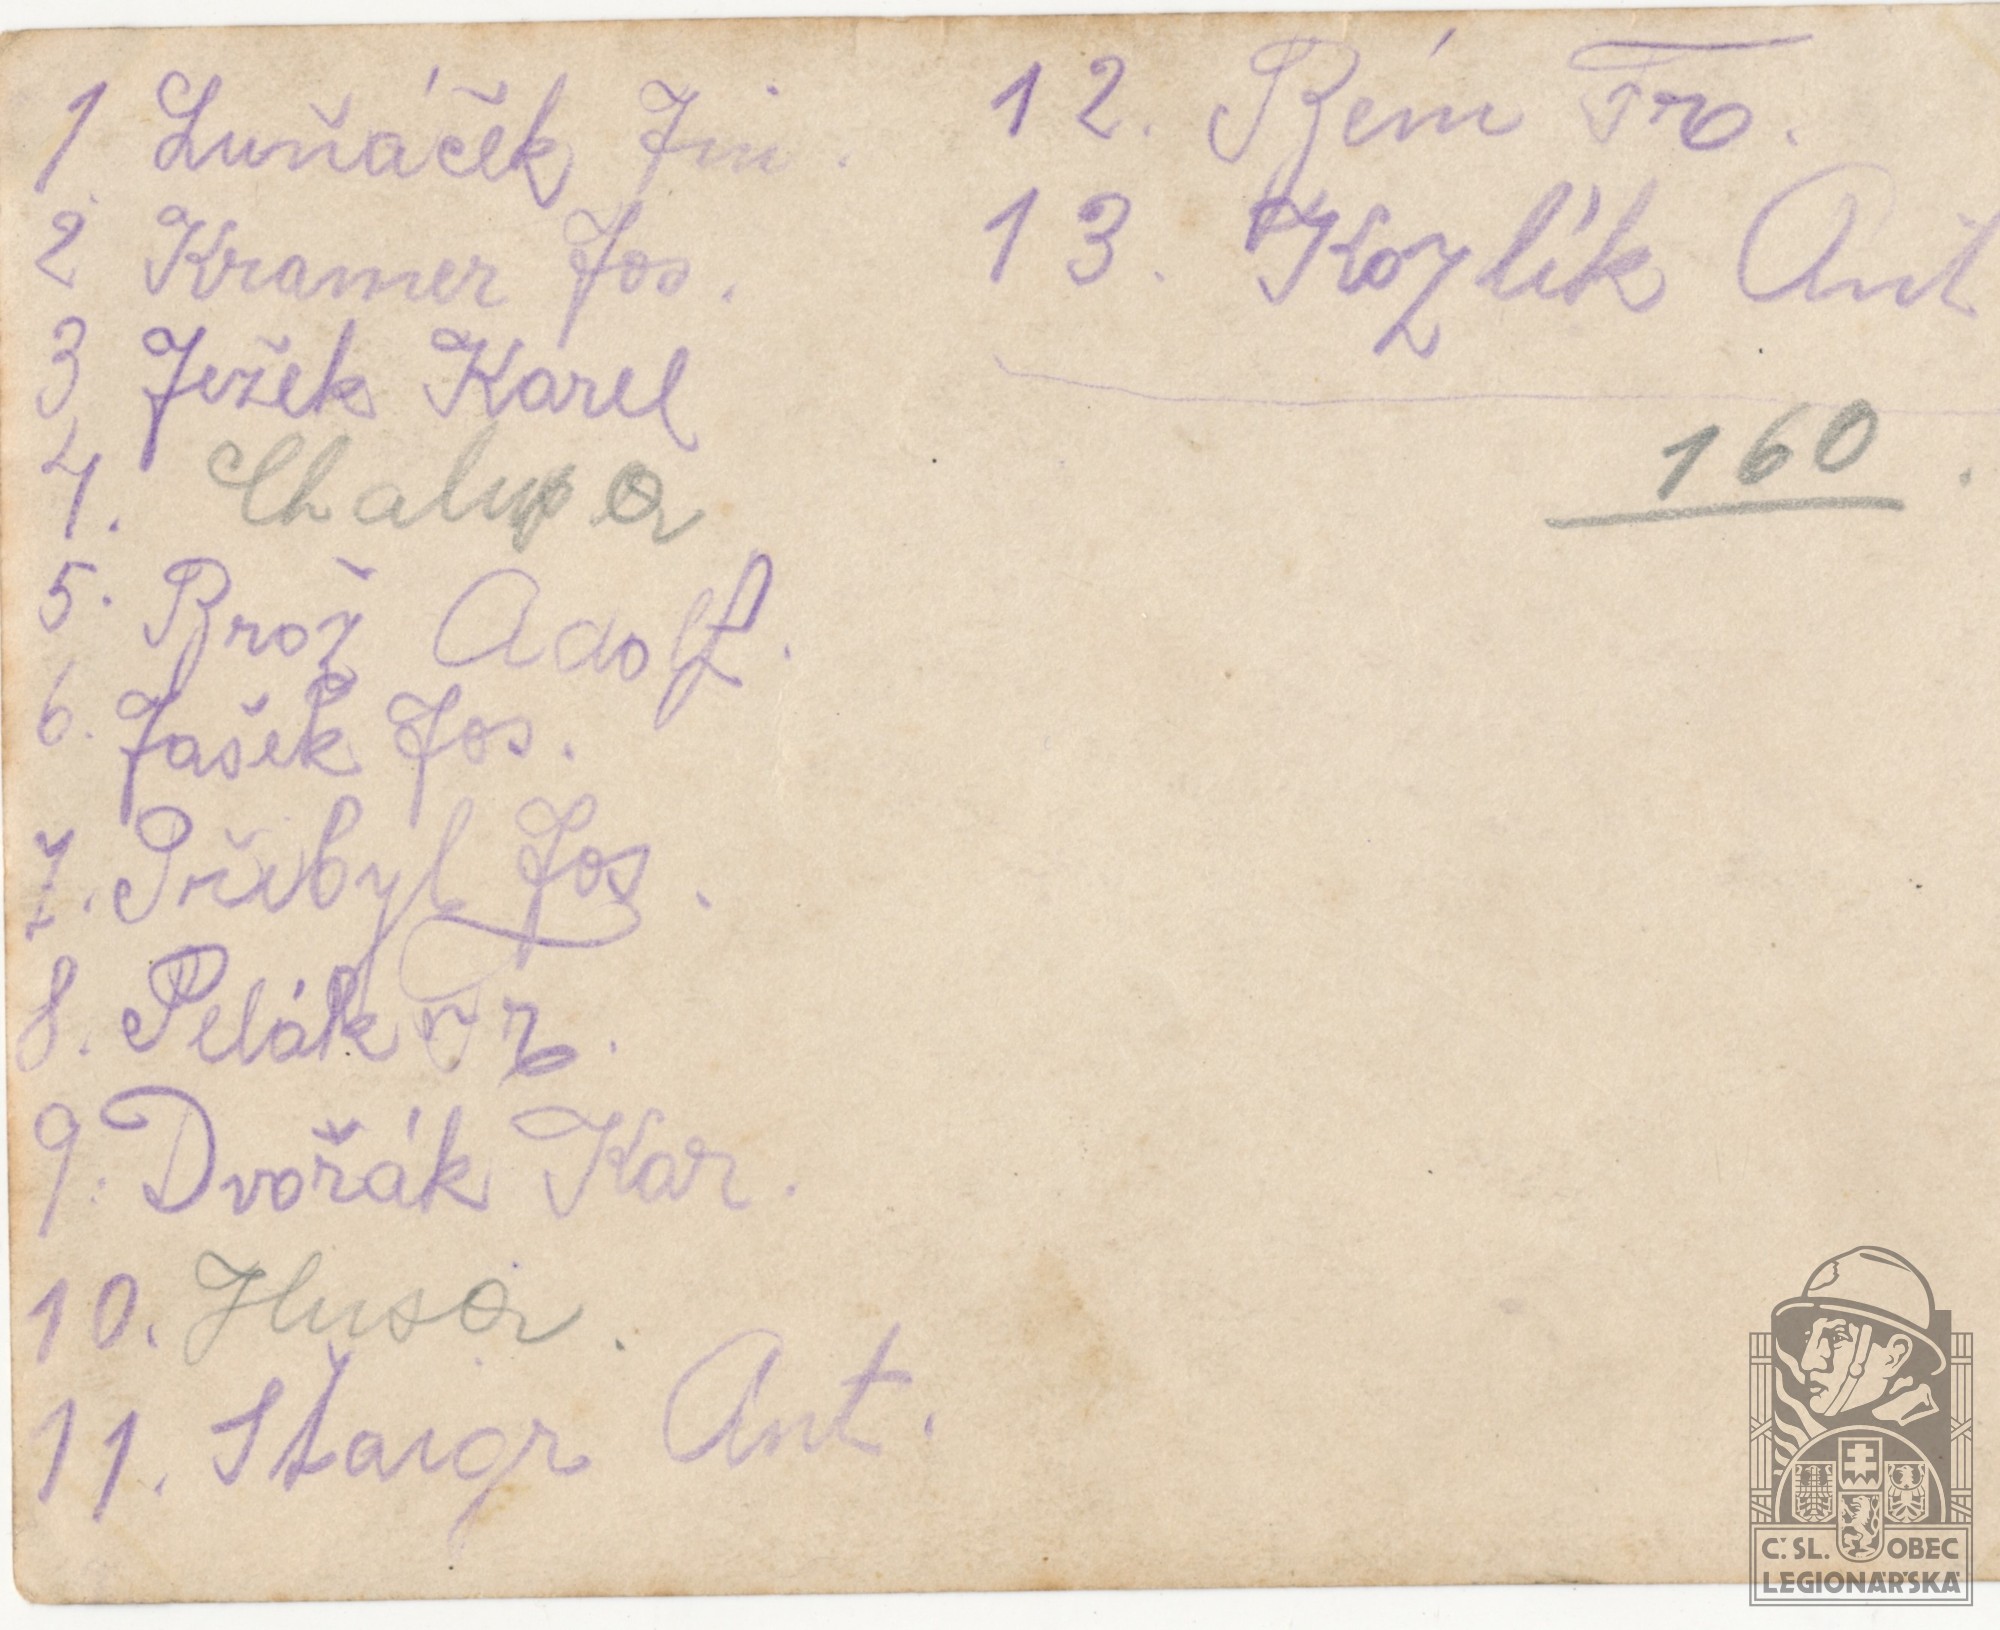 1. Luňáček Jin.
2 Kramer Jos.
3 Ježek Karel
4. Chalupa
5. Brož Adolf.
6. Jašek Jos.
7. Přibyl Jos.
8. Pelák Fr.
9. Dvořák Kar.
10. Husa.
11. Štaigr Ant.
12. Bém Fr.
13. Kozlík Ant
160.
Č. SL. OBEC
LEGIONÁŘSKÁ